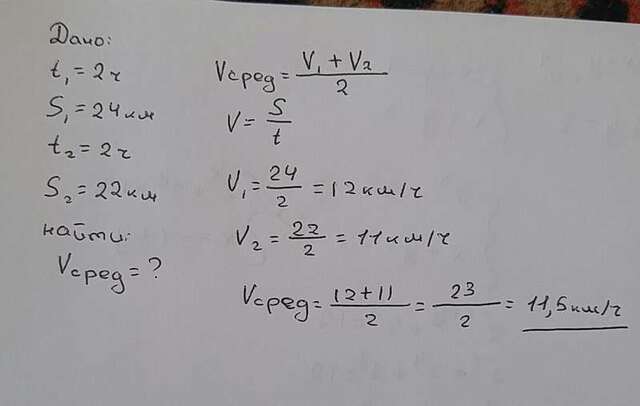 Дано:
t₁ = 2 ч
S₁ = 24 км
t₂ = 2 ч
S₂ = 22 км
найти:
Vсред = ?
Vсред = (V₁ + V₂) / 2
V = S / t
V₁ = 24 / 2 = 12 км/ч
V₂ = 22 / 2 = 11 км/ч
Vсред = (12 + 11) / 2 = 23 / 2 = 11,5 км/ч